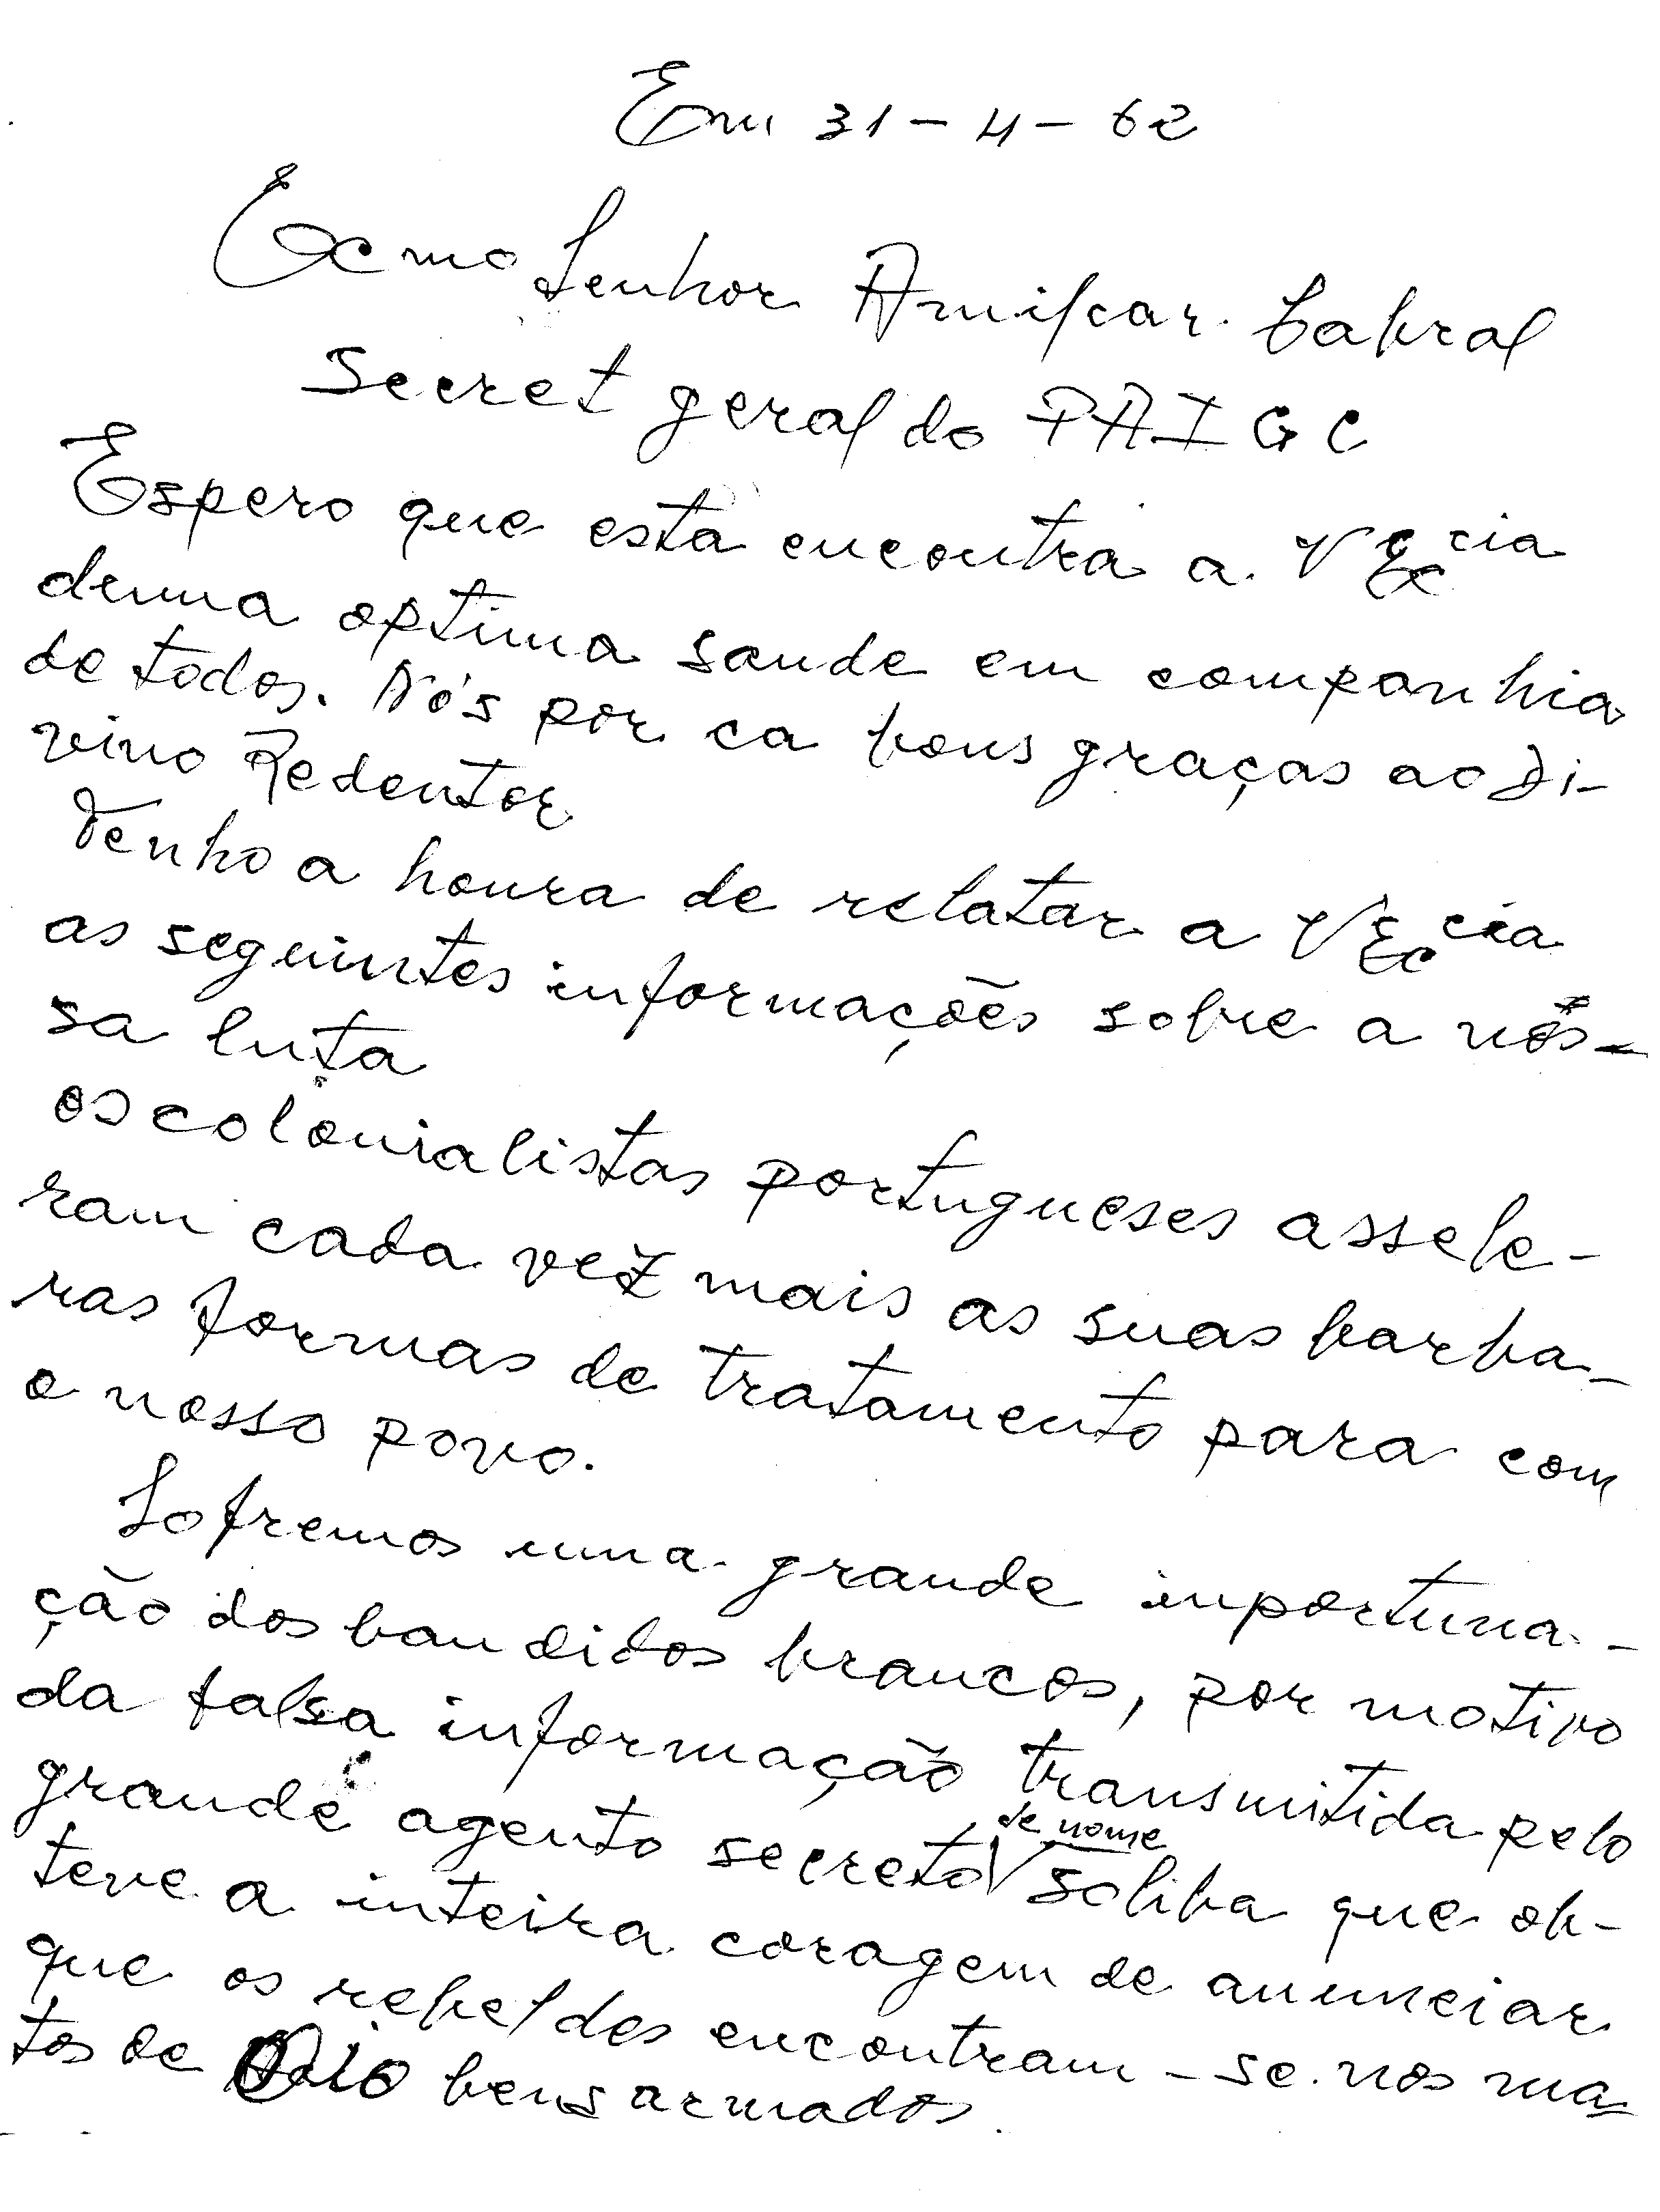 Em 31-4-62
Ecmo Senhor Amilcar Cabral
Secret geral do PAIGC
Espero que esta encontra a VEccia
duma optima saude em companhia
de todos. Nós por ca bons graças ao Di-
vino Redentor
Tenho a honra de relatar a VEccia
as seguintes informações sobre a nós-
sa luta
os colonialistas portugueses assele-
ram cada vez mais as suas barba-
ras formas de tratamento para com
o nosso povo.
Sofremos uma grande inportuna-
ção dos bandidos brancos, por motivo
da falsa informação transmitida pelo
grande agento secreto de nome Soliba que ob-
teve a inteira coragem de anunciar
que os rebeldes encontram-se nos ma-
tos de Oio bens armados.